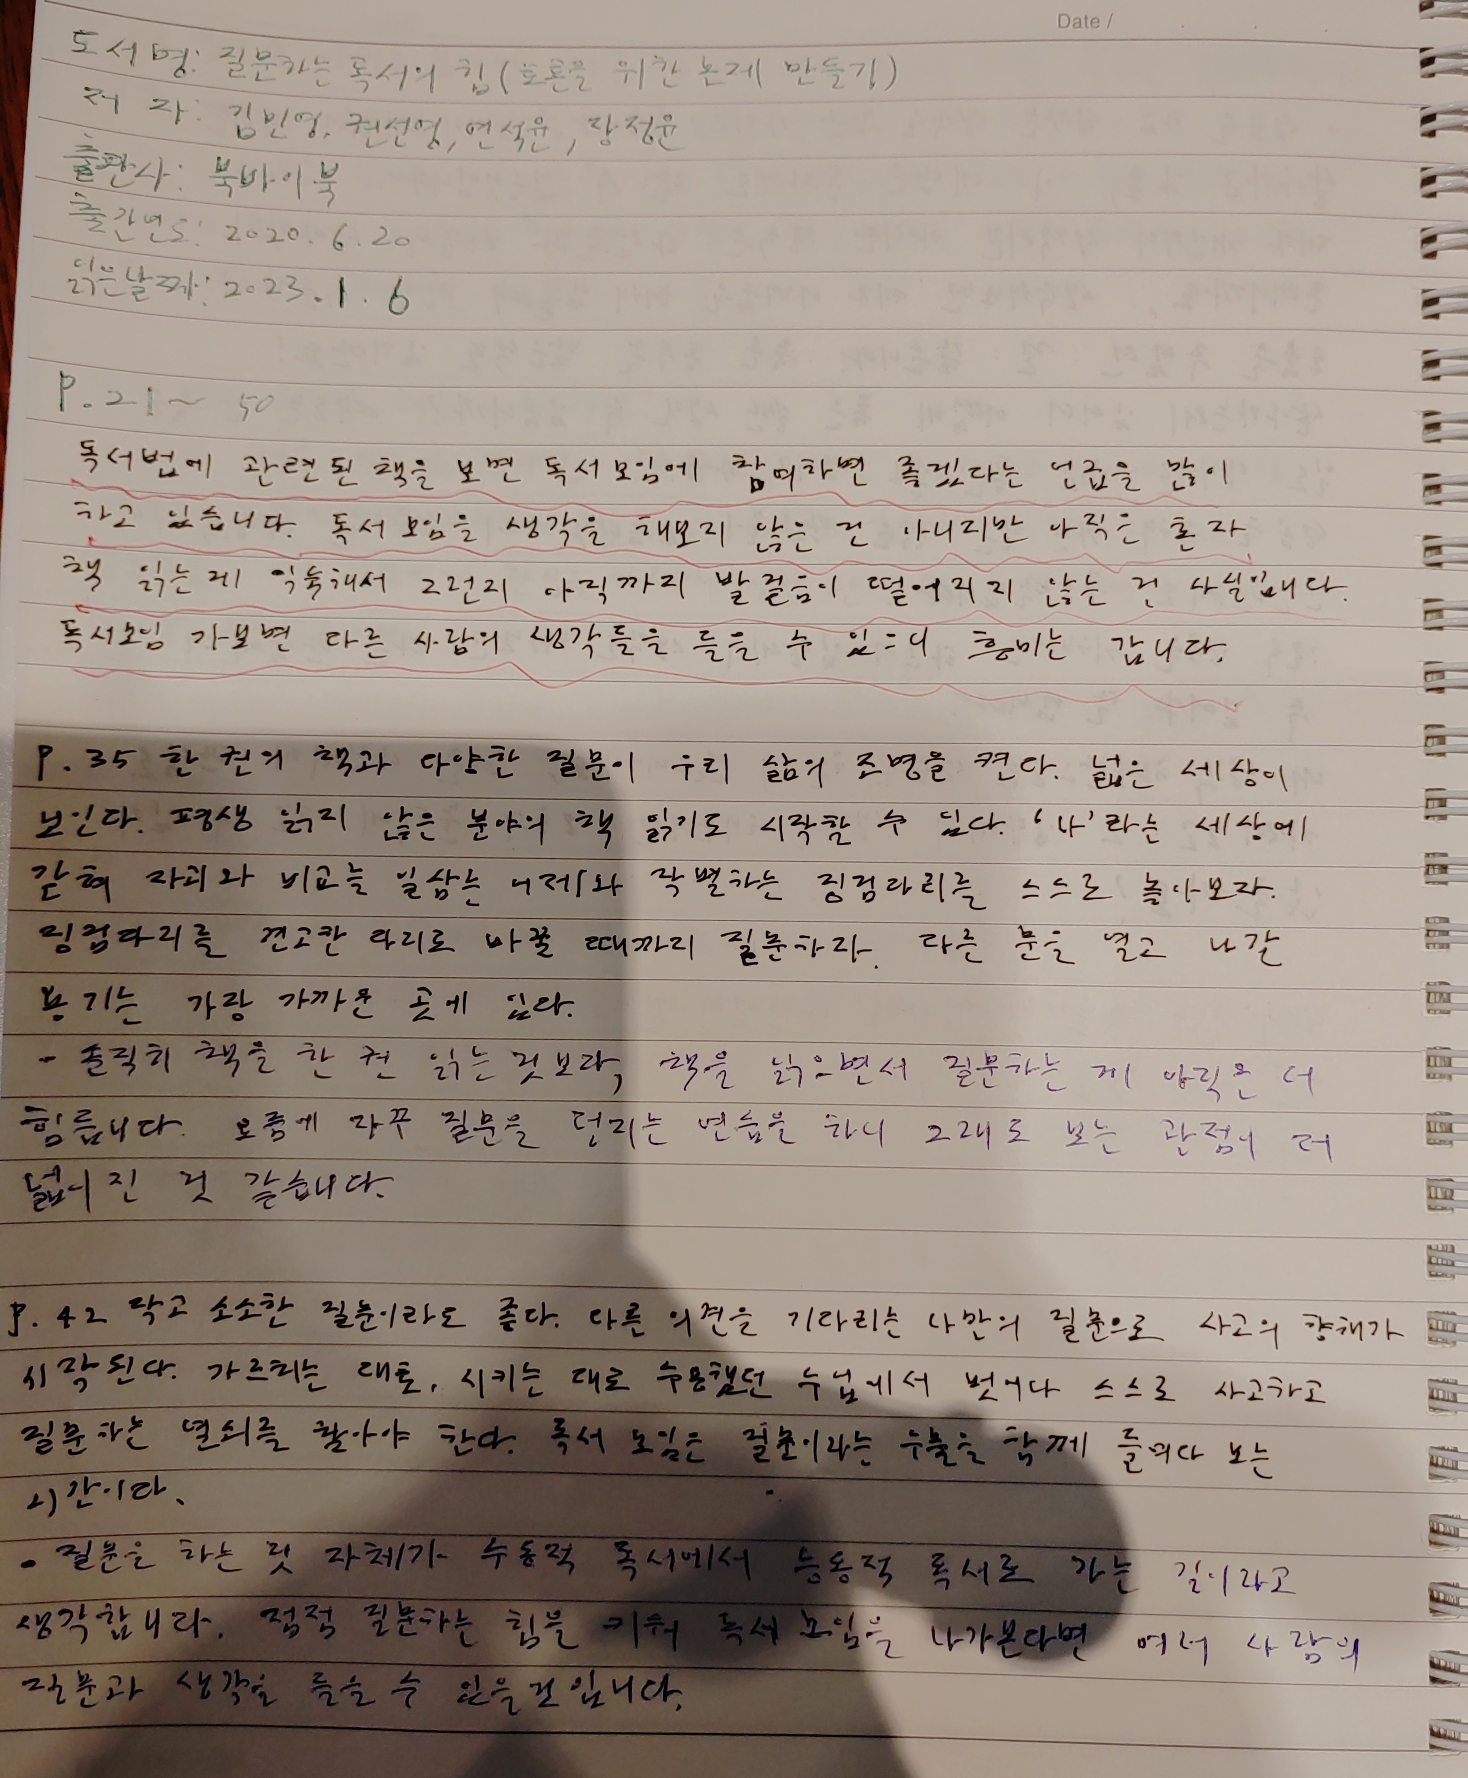 Date /
도서명: 질문하는 독서의 힘(토론을 위한 논제 만들기)
저 자: 김민영, 권선영, 연석윤, 장정윤
출판사: 북바이북
출간년도: 2020. 6. 20
읽은날짜: 2023. 1. 6
P. 21~ 50
독서법에 관련된 책을 보면 독서모임에 참여하면 좋겠다는 언급을 많이
하고 있습니다. 독서 모임을 생각을 해보지 않은 건 아니지만 아직은 혼자
책 읽는게 익숙해서 그런지 아직까지 발걸음이 떨어지지 않는 건 사실입니다.
독서모임 가보면 다른 사람의 생각들을 들을 수 있으니 흥미는 갑니다.
P. 35 한 권의 책과 다양한 질문이 우리 삶의 조명을 켠다. 넓은 세상이
보인다. 평생 읽지 않은 분야의 책 읽기도 시작할 수 있다. '나'라는 세상에
갇혀 자괴와 비교를 일삼는 어제와 작별하는 징검다리를 스스로 놓아보자.
징검다리를 견고한 다리로 바꿀 때까지 질문하라. 다른 문을 열고 나갈
용기는 가장 가까운 곳에 있다.
- 솔직히 책을 한 권 읽는 것보다, 책을 읽으면서 질문하는 게 아직은 더
힘듭니다. 요즘에 자꾸 질문을 던지는 연습을 하니 그래도 보는 관점이 더
넓어진 것 같습니다.
P. 42 작고 소소한 질문이라도 좋다. 다른 의견을 기다리는 나만의 질문으로 사고의 항해가
시작된다. 가르치는 대로, 시키는 대로 수용했던 수업에서 벗어나 스스로 사고하고
질문하는 열쇠를 찾아야 한다. 독서 모임은 질문이라는 우물을 함께 들여다 보는
시간이다.
- 질문을 하는 것 자체가 수동적 독서에서 능동적 독서로 가는 길이라고
생각합니다. 점점 질문하는 힘을 키워 독서 모임을 나가본다면 여러 사람의
질문과 생각을 들을 수 있을것입니다.